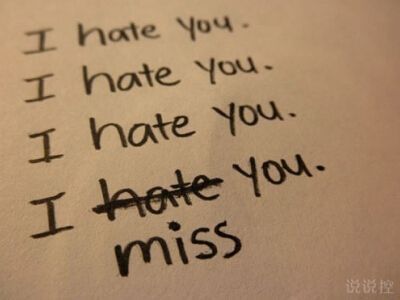 I hate you.
I hate you.
I hate you.
I hate you.
miss
说说控